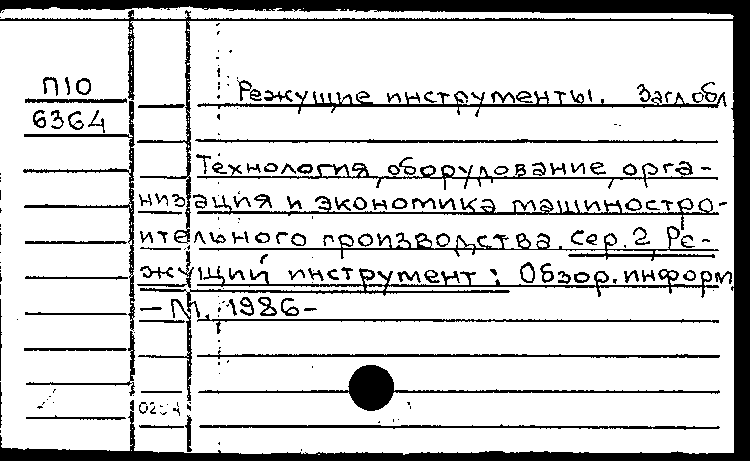 П10
6364
Режущие инструменты. Загл.обл
Технология, оборудование, орга-
низация и экономика машиностро-
ительного производства. Сер. 2, Ре-
жущий инструмент: Обзор. информ
– М., 1986–